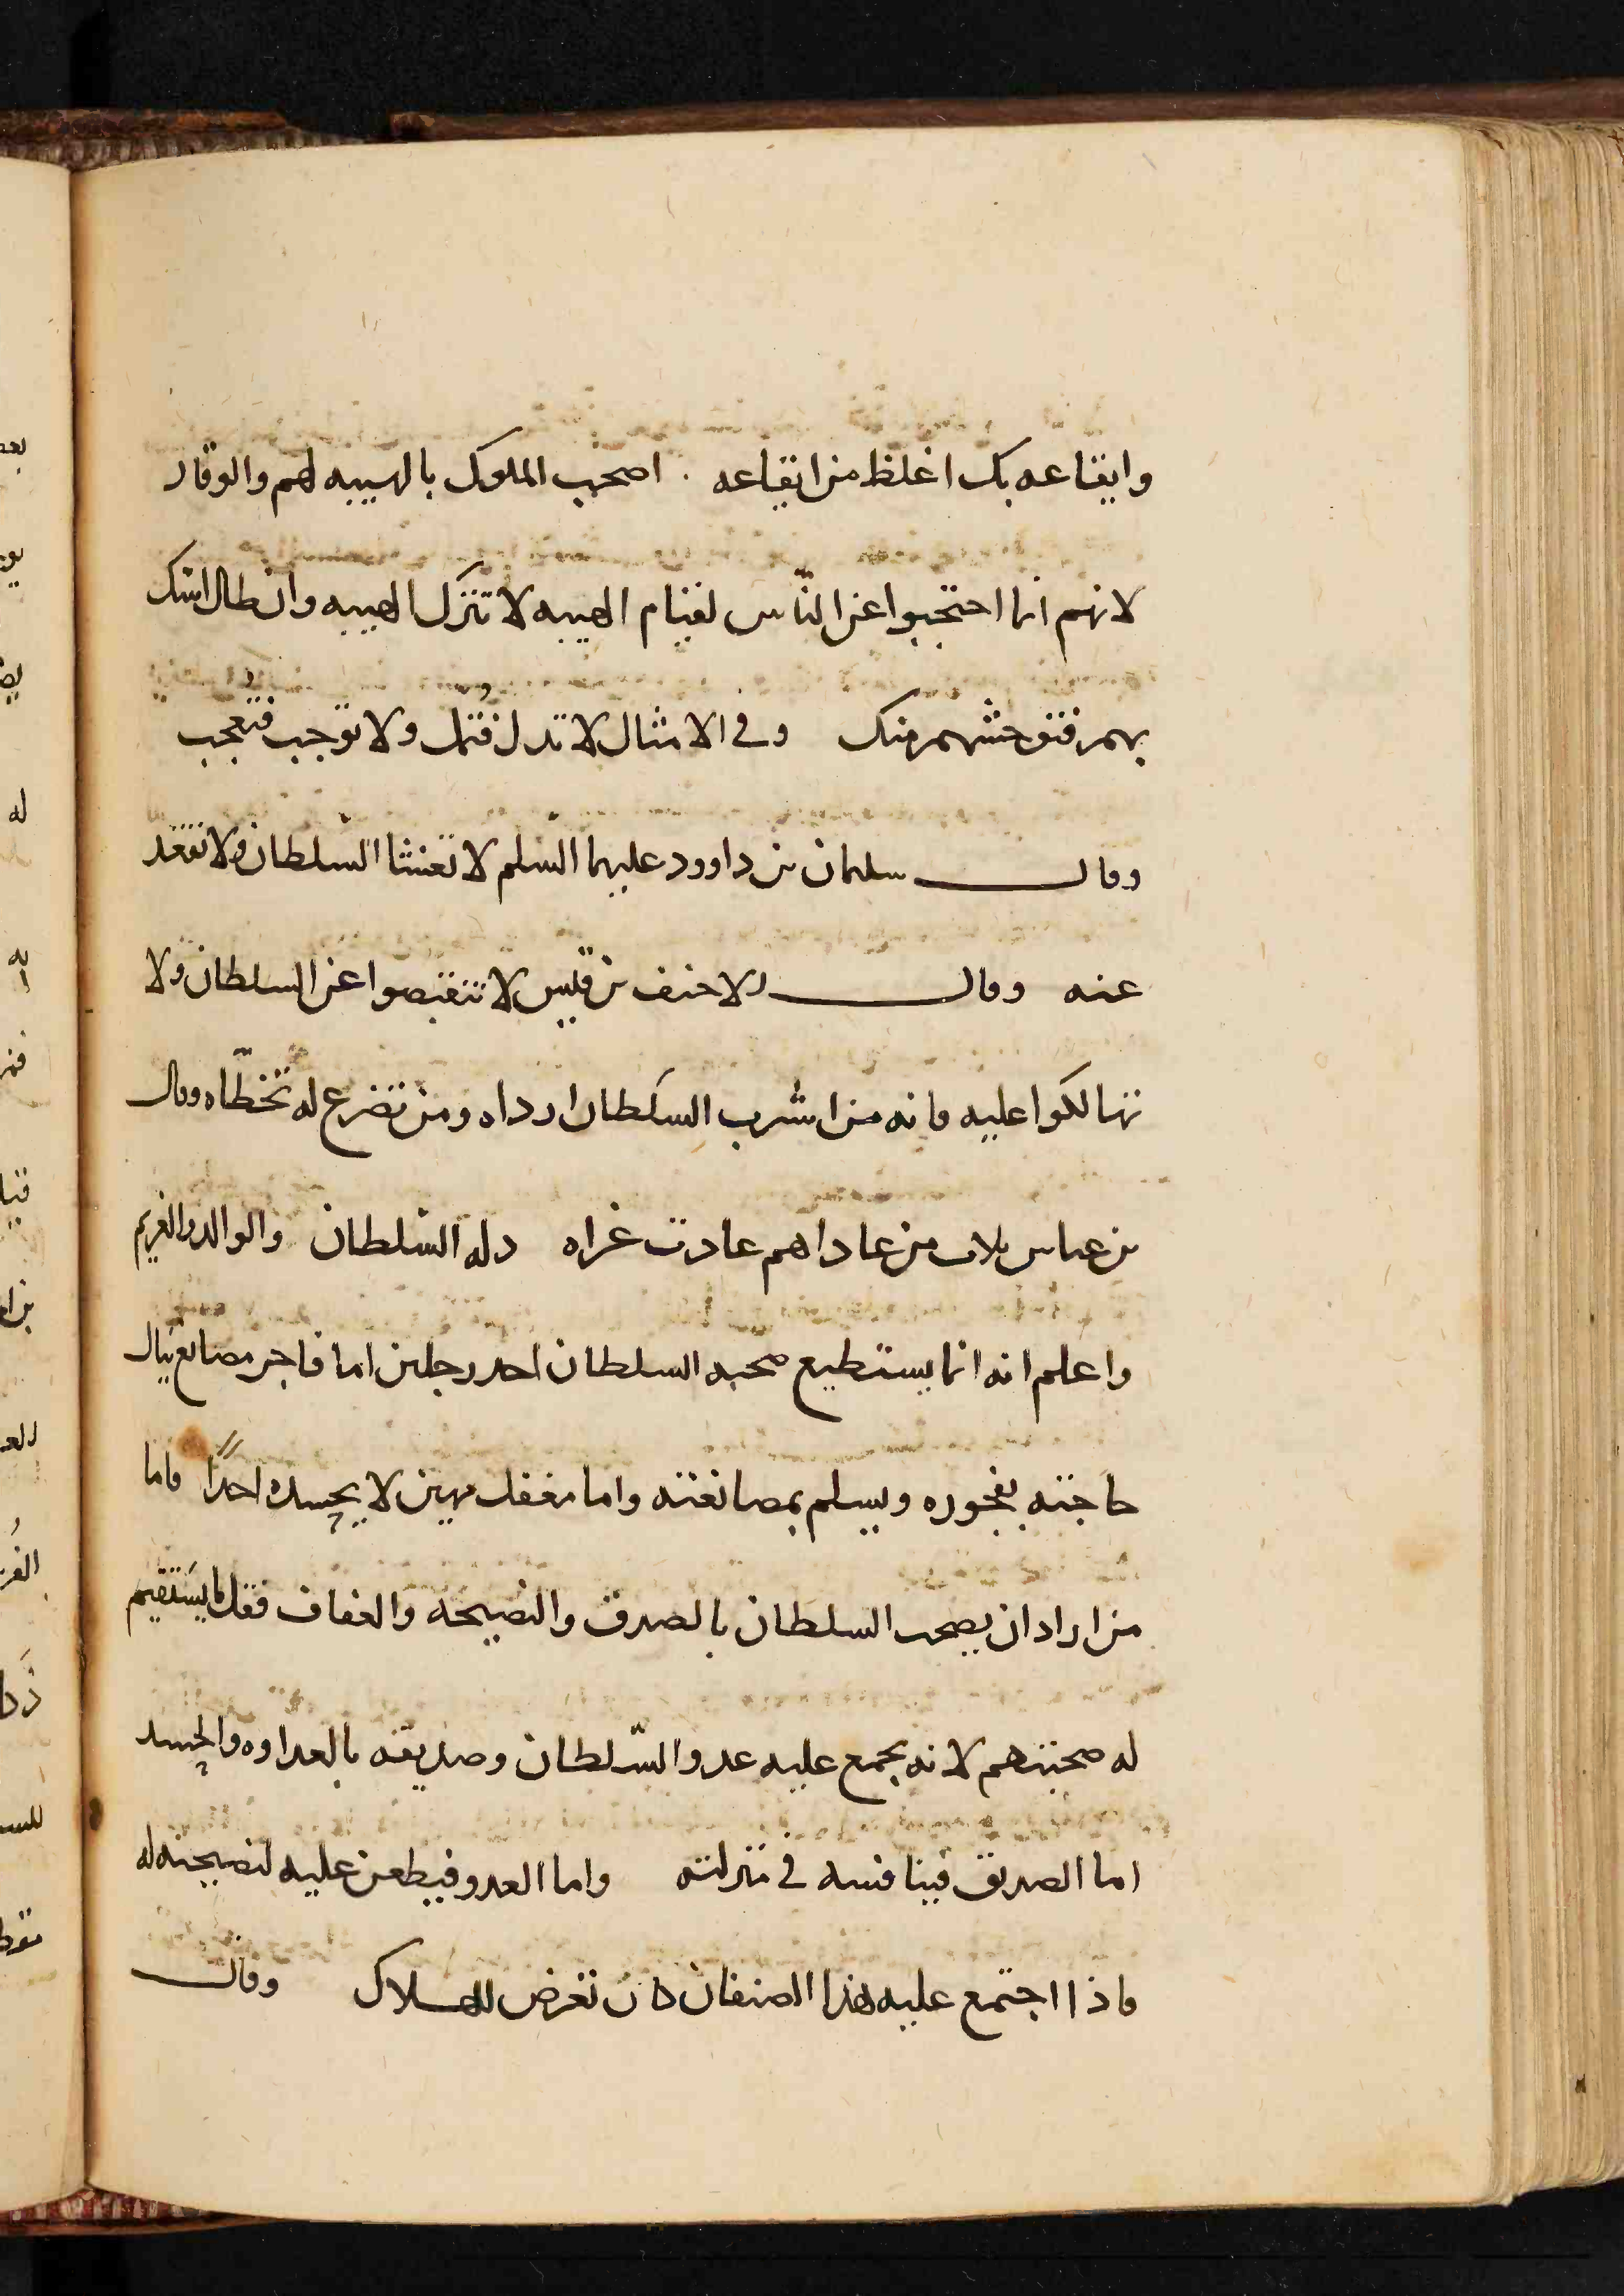 وايقاعه بك اغلظ من ايقاعه . اصحب الملوك بالهيبه لهم والوقار
لانهم انما احتجبوا عن الناس لقيام الهيبه لا تترك الهيبه وان طال انسك
بهم فتوحشهم منك وفي الامثال لا تدل فتمل ولا توجب فتعجب
وقال سلمان بن داوود عليهما السلم لا تغشا السلطان ولا تقعد
عنه وقال الاحنف بن قيس لا تنقبضوا عن السلطان ولا
تهالكوا عليه فانه من اشرب السلطان ارداه ومن تضرع له تخطاه وقال
بن عباس ثلاث من عاداهم عادت عزاه دله السلطان والوالد والغريم
واعلم انه انما يستطيع صحبه السلطان احد رجلين اما فاجر مصانع ينال
حاجته بفجوره ويسلم بمصانعته واما مغفل مهين لا يحسده احدا فاما
من اراد ان يصحب السلطان بالصدق والنصيحه والعفاف فقل ما يستقيم
له صحبتهم لانه يجمع عليه عدو السلطان وصديقه بالعداوه والحسد
اما الصديق فينافسه في منزلته واما العدو فيطعن عليه لنصيحته له
فاذا اجتمع عليه هذا الصنفان كان تعرض للهلاك وقال